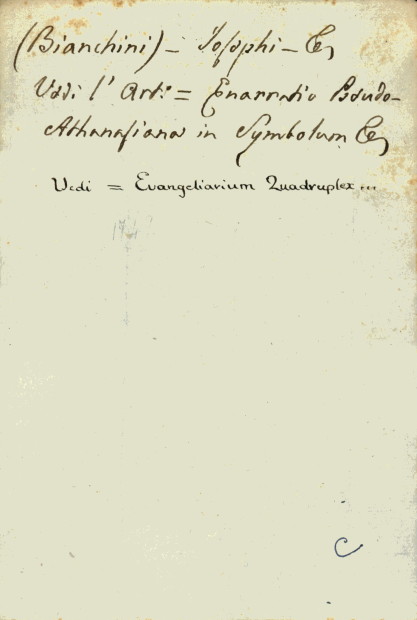 (Bianchini) – Josephi – &c
Vedi l' Art.º = Enarratio Pseudo-
Athanasiana in Symbolum &c
Vedi = Evangeliarium Quadruplex...
C